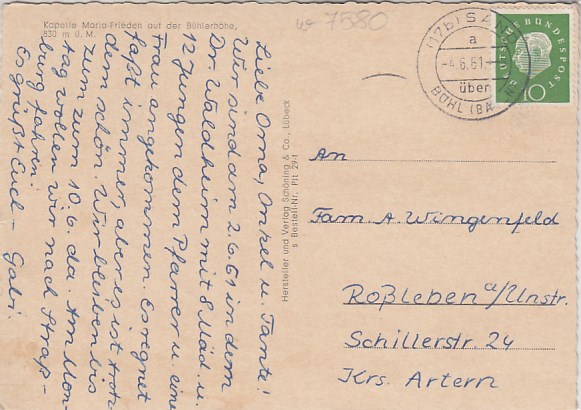 Kapelle Maria-Frieden auf der Bühlerhöhe,
830 m ü. M.
7580
Liebe Oma, Onkel u. Tante!
Wir sind am 2.6.61 in dem
Dor Waldheim mit 8 Mäd. u.
12 Jungen dem Pfarrer u. eine
Frau angekommen. Es regnet
fast immer, aber es ist trotz-
dem schön. Wir bleiben bis
zum zum 10.6. da. Am Mon-
tag wollen wir nach Straß-
burg fahren!
Es grüßt Euch - Gabi
Hersteller und Verlag Schöning & Co., Lübeck
s Bestell-Nr. Plt 294
(17b) SA
a
-4.6.61.-
über
BÜHL (BA N)
DEUTSCHE BUNDESPOST
10
An
Fam. A. Wingenfeld
Roßleben a/Unstr.
Schillerstr 24
Krs. Artern